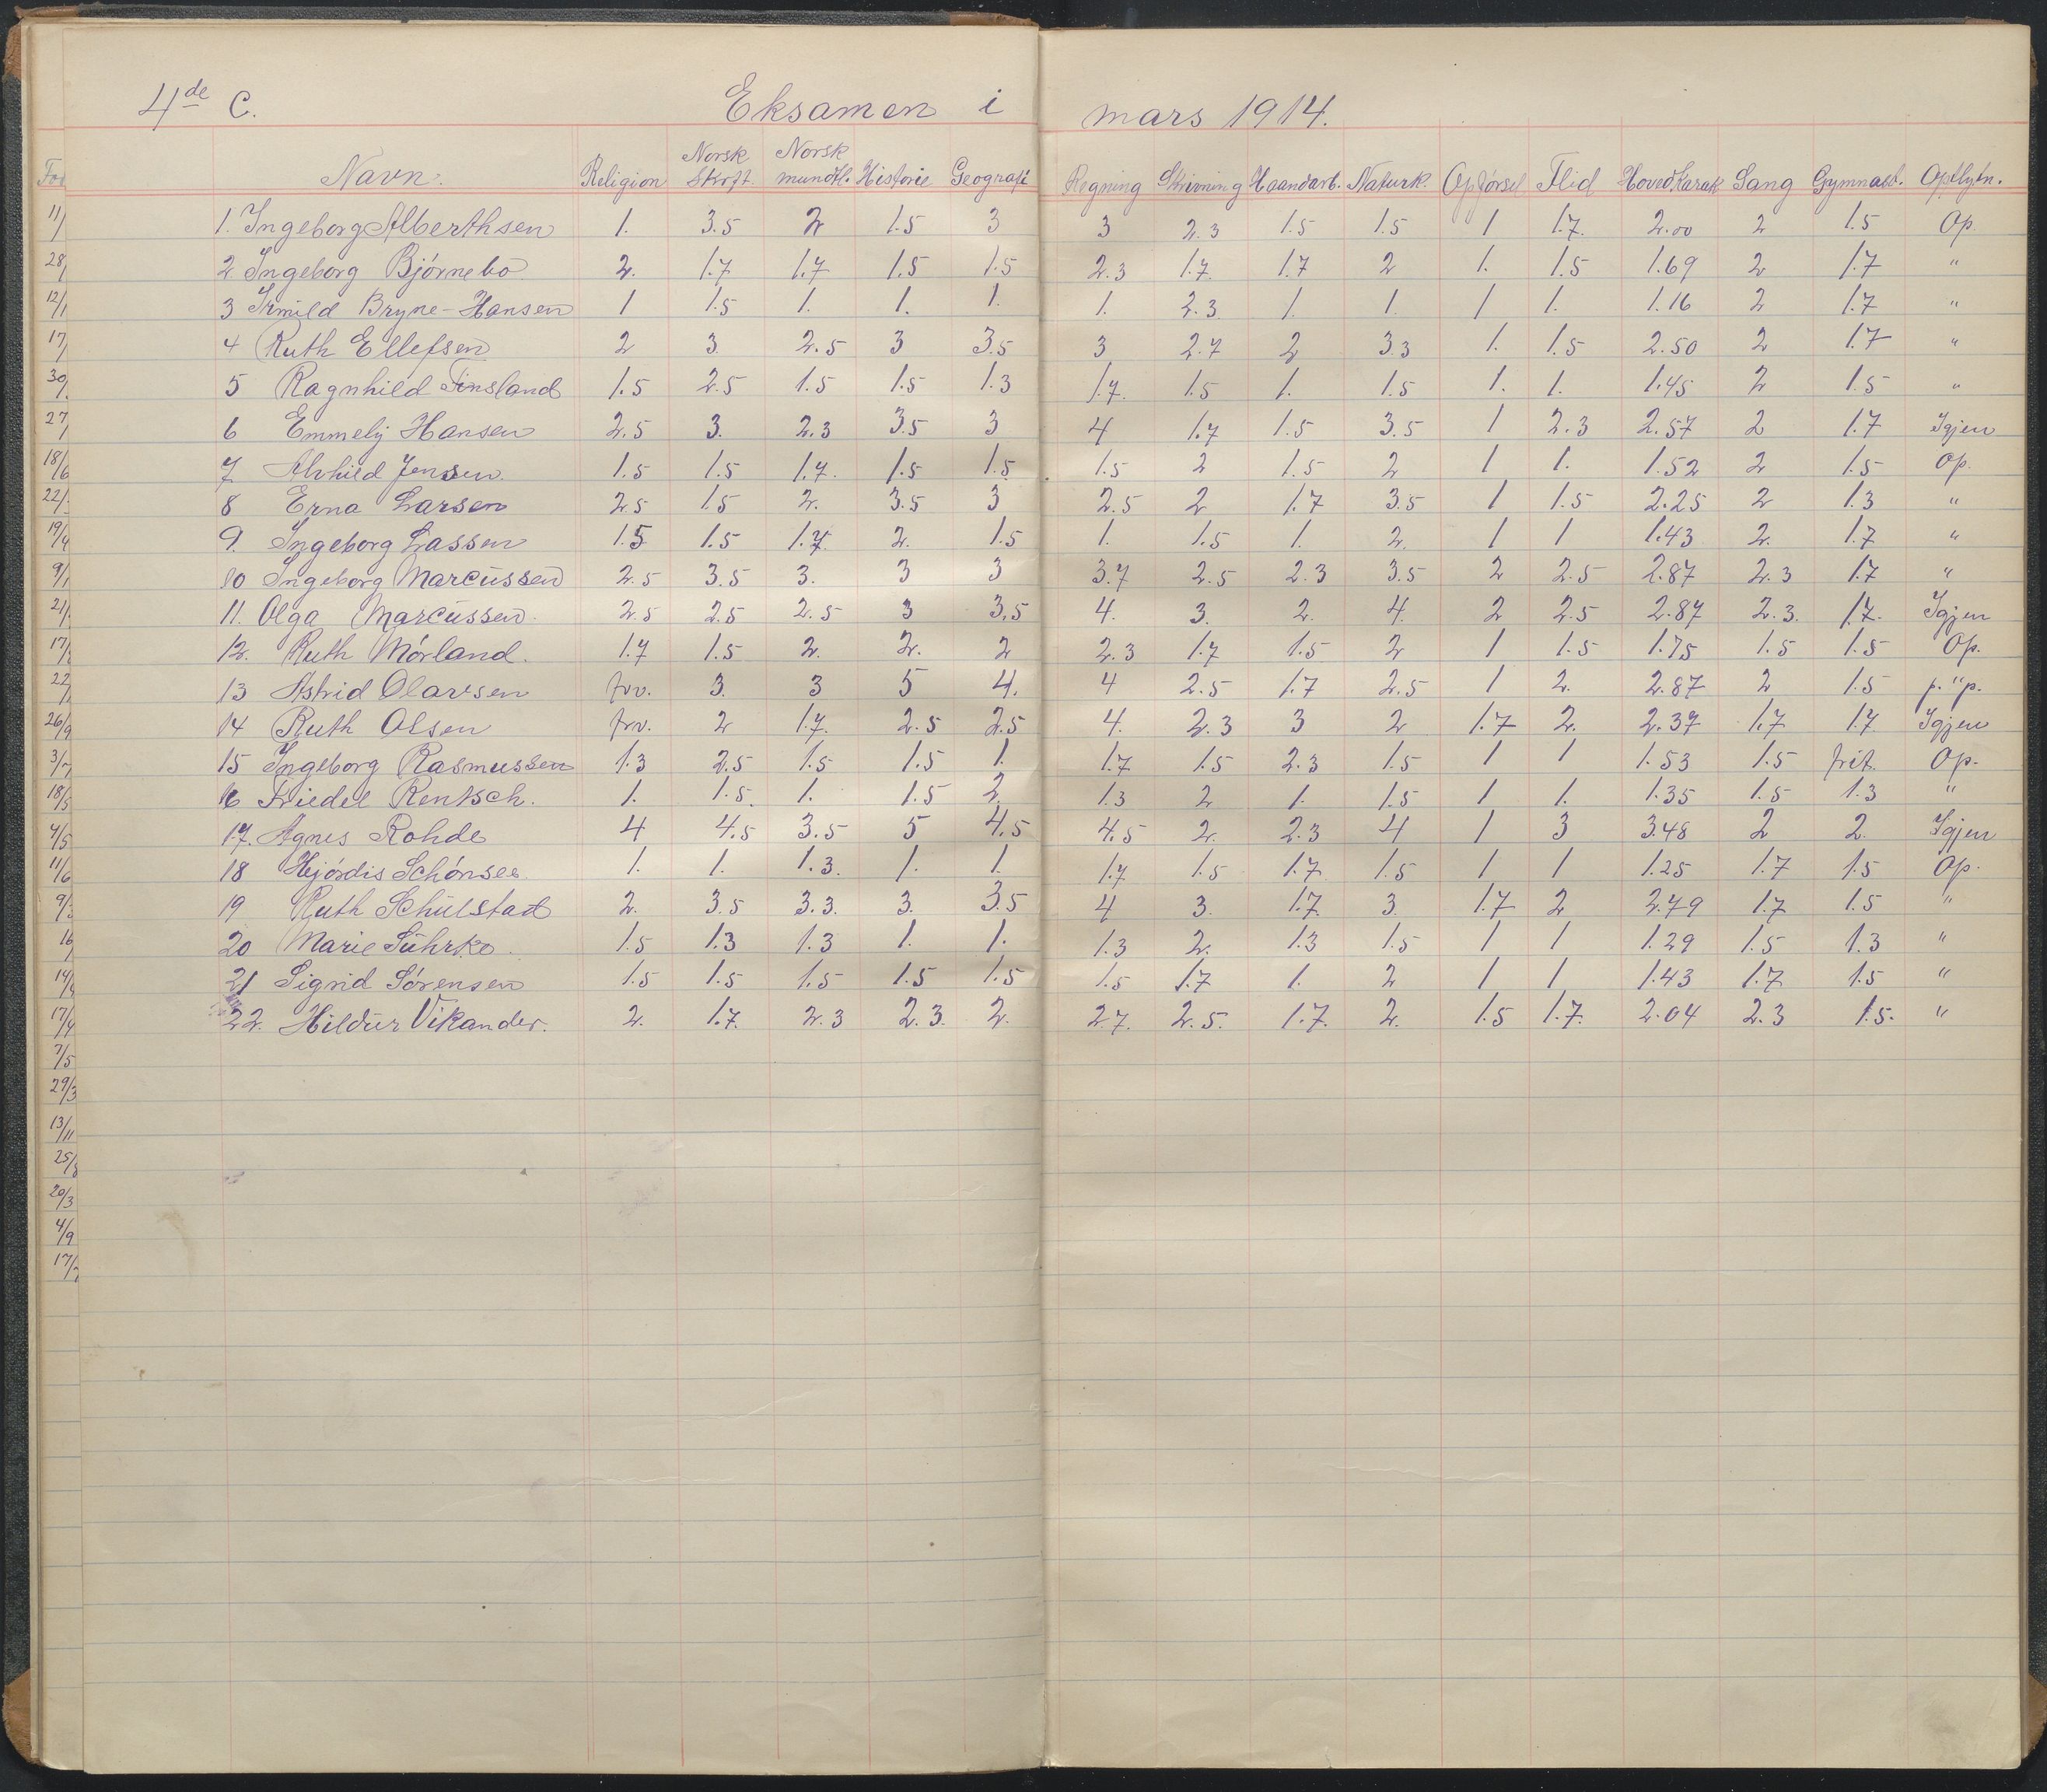 4de C. Eksamen i mars 1914.
Navn. Religion Norsk skrift. Norsk mundtl. Historie Geografi Regning Skrivning Haandarb. Naturk. Opførsel Flid Hovedkarak Sang Gymnast. Opflytn.
11/ 1. Ingeborg Alberthsen 1. 3.5 2 1.5 3 3 2.3 1.5 1.5 1 1.7. 2.00 2 1.5 Op.
28/ 2 Ingeborg Bjørnebo 2. 1.7 1.7 1.5 1.5 2.3 1.7. 1.7 2 1. 1.5 1.69 2 1.7 "
12/1 3 Irmild Bryne-Hansen 1 1.5 1. 1. 1. 1. 2.3 1. 1. 1 1. 1.16 2 1.7 "
17/ 4 Ruth Ellefsen 2 3. 2.5 3 3.5 3 2.7 2 3.3 1. 1.5 2.50 2 1.7 "
30/ 5 Ragnhild Finsland 1.5 2.5 1.5 1.5 1.3 1.7. 1.5 1. 1.5 1. 1. 1.45 2 1.5 "
27/ 6 Emmely Hansen 2.5 3. 2.3 3.5 3 4 1.7 1.5 3.5 1 2.3 2.57 2 1.7 Igjen
18/6 7 Alvhild Jensen. 1.5 1.5 1.7. 1.5 1.5 1.5 2 1.5 2 1 1. 1.52 2 1.5 Op.
22/ 8 Erna Larsen 2.5 1.5 2. 3.5 3 2.5 2 1.7 3.5 1 1.5 2.25 2 1.3 "
19/4 9. Ingeborg Lassen 1.5 1.5 1.7. 2. 1.5 1. 1.5 1. 2. 1 1 1.43 2. 1.7 "
9/1 10 Ingeborg Marcussen 2.5 3.5 3. 3 3 3.7 2.5 2.3 3.5 2 2.5 2.87 2.3 1.7 "
21/ 11. Olga Marcussen. 2.5 2.5 2.5 3 3.5 4. 3. 2. 4. 2 2.5 2.87 2.3. 1.7. Igjen
17/ 12. Ruth Mørland. 1.7 1.5 2. 2. 2 2.3 1.7 1.5 2 1 1.5 1.75 1.5 1.5 Op.
22/ 13 Astrid Olavsen frv. 3. 3 5 4. 4 2.5 1.7 2.5 1 2. 2.87 2 1.5 p. " p.
26/9 14 Ruth Olsen frv. 2 1.7. 2.5 2.5 4. 2.3 3 2 1.7 2. 2.37 1.7 1.7 Igjen
3/7 15 Ingeborg Rasmussen 1.3 2.5 1.5 1.5 1. 1.7 1.5 2.3 1.5 1 1 1.53 1.5 frit. Op.
18/5 16 Friedel Rentsch. 1. 1.5. 1. 1.5 2. 1.3 2 1. 1.5 1 1. 1.35 1.5 1.3 "
4/5 17. Agnes Rohde 4 4.5 3.5 5 4.5 4.5 2. 2.3 4 1 3 3.48 2 2. Igjen
11/6 18 Hjørdis Schønsee. 1. 1. 1.3. 1. 1. 1.7 1.5 1.7. 1.5 1 1 1.25 1.7 1.5 Op.
9/ 19 Ruth Schulstad 2. 3.5 3.3. 3. 3.5 4 3. 1.7 3 1.7 2 2.79 1.7 1.5 "
16/ 20 Marie Suhrke. 1.5 1.3 1.3 1. 1. 1.3 2. 1.3 1.5 1 1 1.29 1.5 1.3 "
14/ 21 Sigrid Sørensen 1.5 1.5 1.5 1.5 1.5 1.5 1.7 1. 2 1 1 1.43 1.7 1.5 "
17/4 22. Hildur Vikander. 2. 1.7. 2.3 2.3. 2. 2.7. 2.5. 1.7. 2. 1.5 1.7. 2.04 2.3 1.5. "
7/5
29/3
13/11
25/8
20/3
4/9
17/7